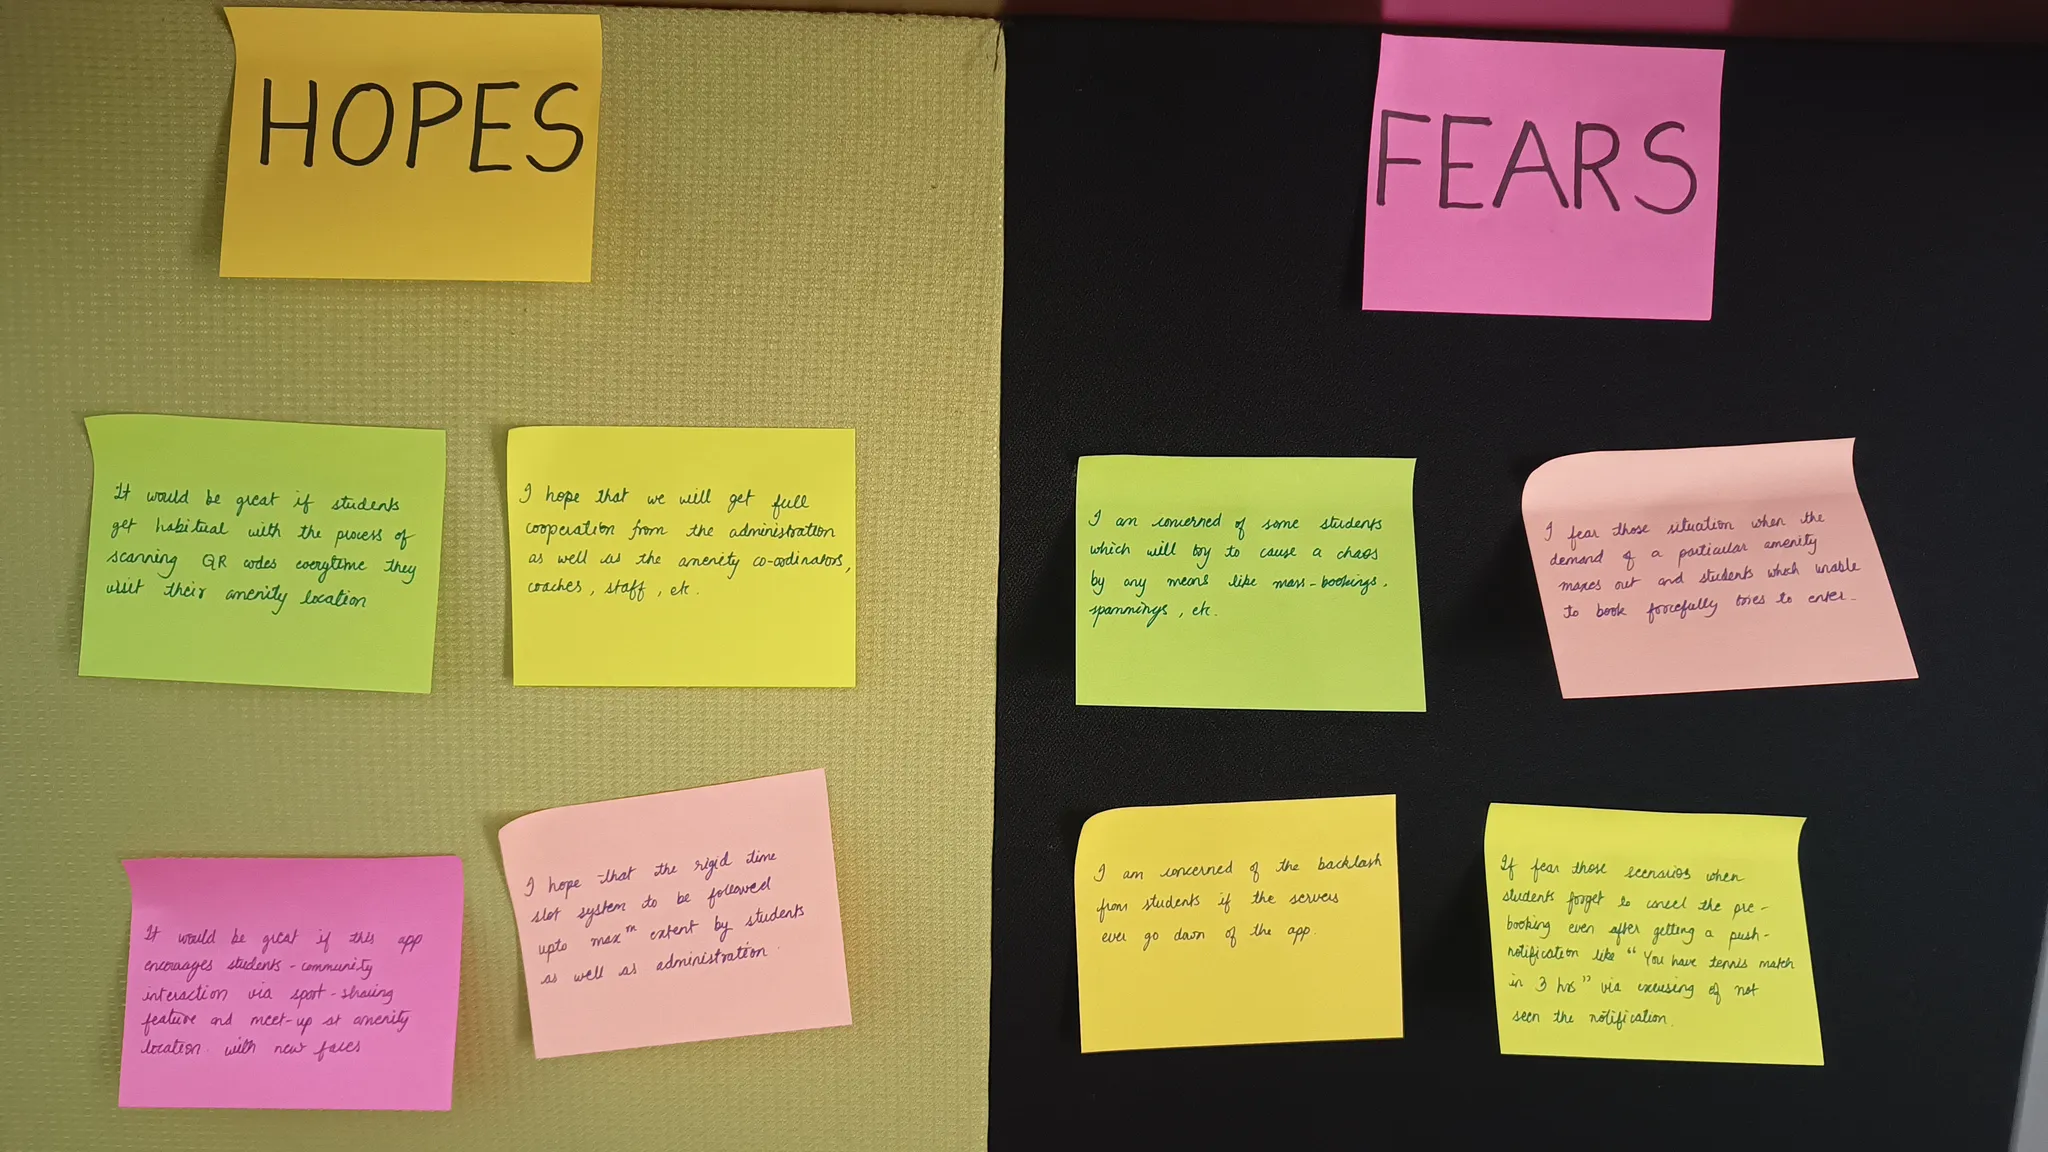 HOPES
It would be great if students
get habitual with the process of
scanning QR codes everytime they
visit their amenity location
I hope that we will get full
cooperation from the administration
as well as the amenity co-oodinators,
coaches, staff, etc.
It would be great if this app
encourages students-community
interaction via sport-sharing
feature and meet-up at amenity
location. with new faces
I hope that the rigid time
slot system to be followed
upto maxᵐ extent by students
as well as administration.
FEARS
I am concerned of some students
which will try to cause a chaos
by any means like mass-bookings,
spammings, etc.
I fear those situation when the
demand of a particular amenity
maxes out and students which unable
to book forcefully tries to enter.
I am concerned of the backlash
from students if the servers
ever go down of the app.
If fear those scenarios when
students forget to cancel the pre-
booking even after getting a push-
notification like "You have tennis match
in 3 hrs" via excusing of not
seen the notification.